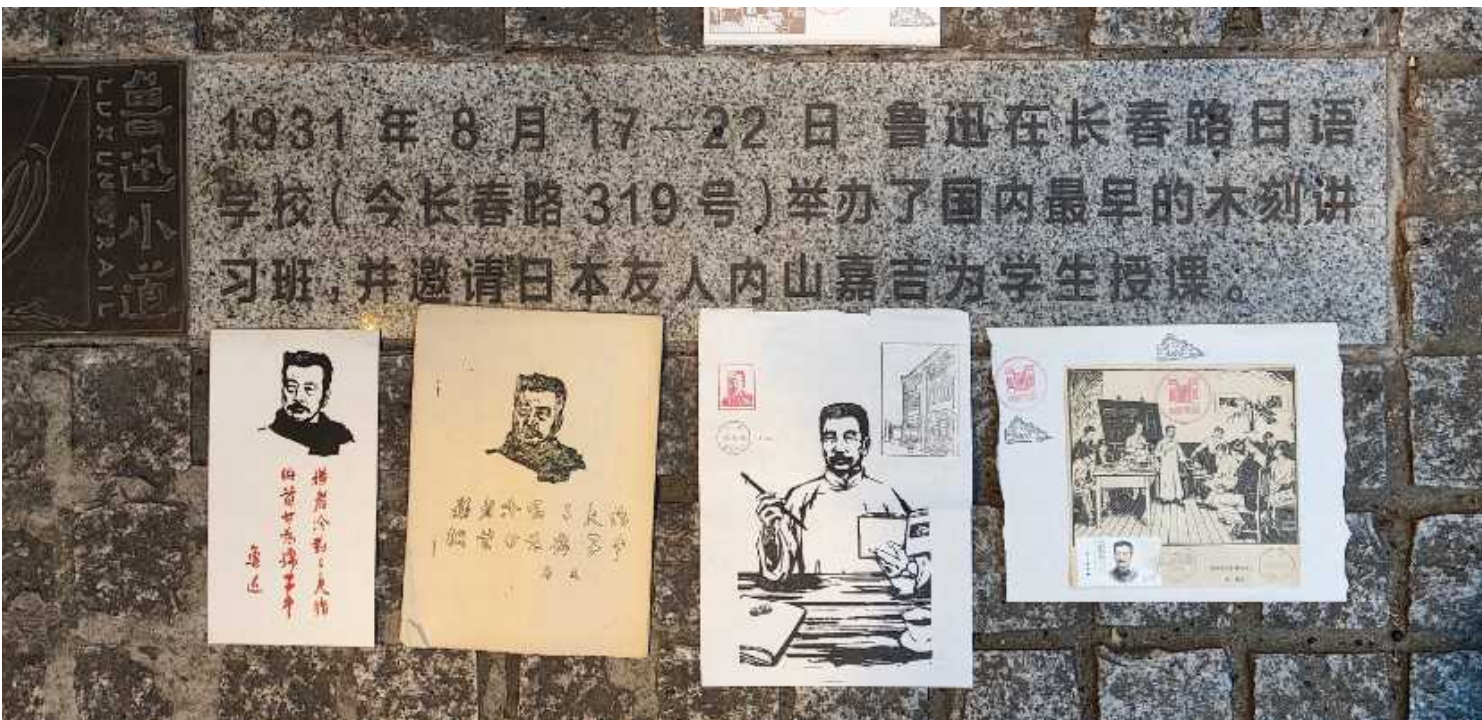 鲁迅小道
LUXUN TRAIL
1931年8月17—22日 鲁迅在长春路日语
学校(今长春路319号)举办了国内最早的木刻讲
习班,并邀请日本友人内山嘉吉为学生授课。
横眉冷对千夫指
俯首甘为孺子牛
鲁迅